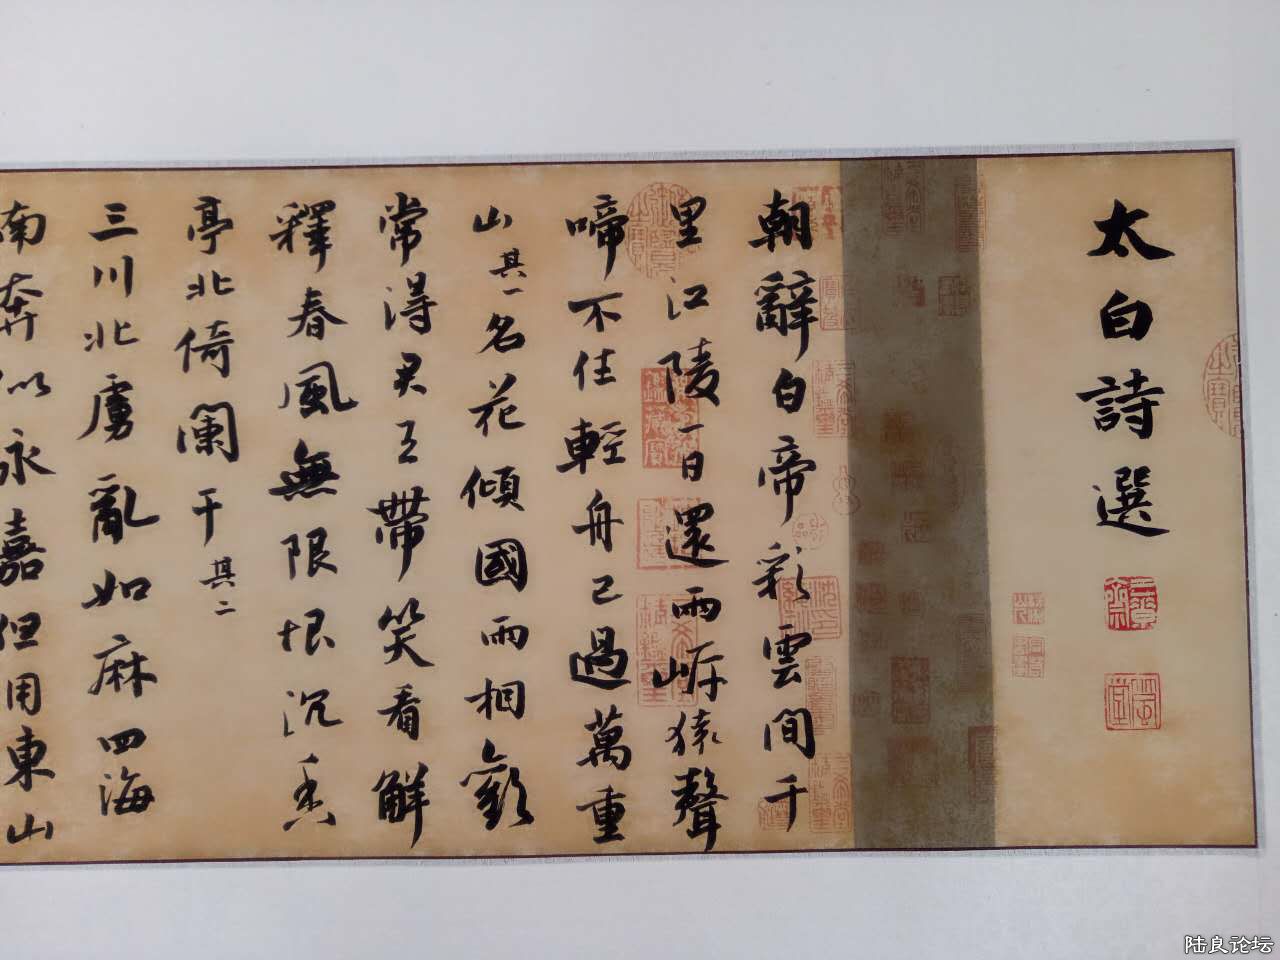 太白詩選
朝辭白帝彩雲間千
里江陵一日還兩岸猿聲
啼不住輕舟已過萬重
山其一名花傾國兩相歡
常得君王帶笑看解
釋春風無限恨沉香
亭北倚闌干其二
三川北虜亂如麻四海
南奔似永嘉但用東山
陆良论坛